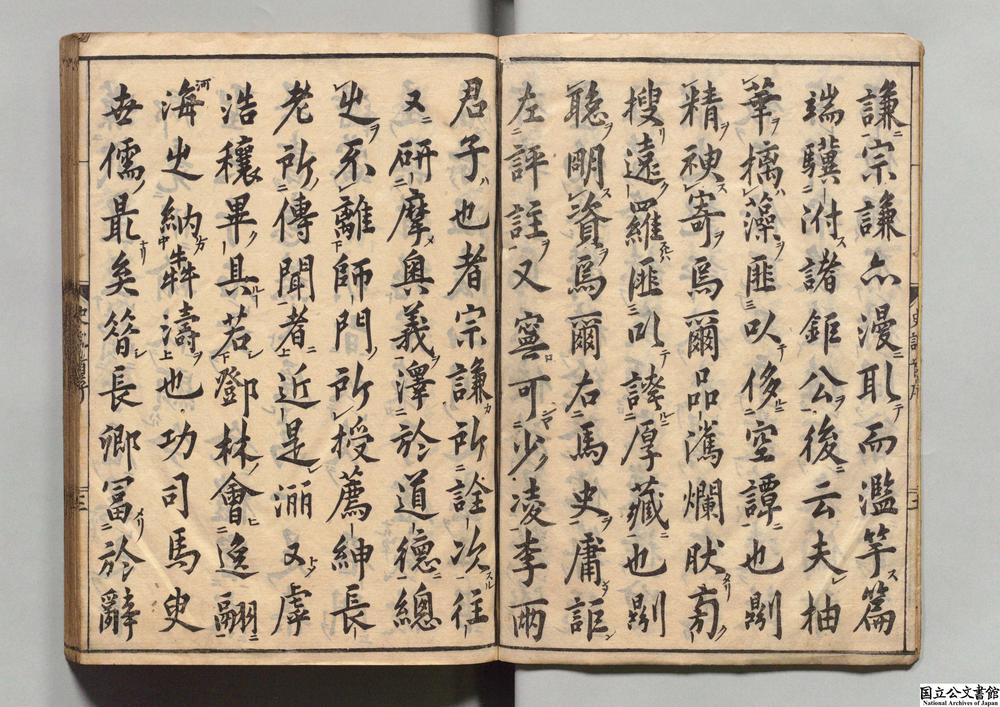 謙宗謙亦漫耴而濫竽篇
端驥泭諸鉅公後云夫柚
華樆藻匪以侈空譚也剬
精神寄焉爾品㵼爛肰
搜遠羅匪以誇厚藏也剬
聰明資焉爾右馬史庸詎
左評註又寧可少凌李兩
君子也者宗謙所詮次往
又研摩奥義澤於道德總
之不離師門所授薦紳長
老所傳聞者近是洏又虖
浩穰畢具若鄧林會逸翮
河
海之納犇濤也功司馬史
世儒最矣簪長卿冨於辭
国立公文書館
National Archives of Japan